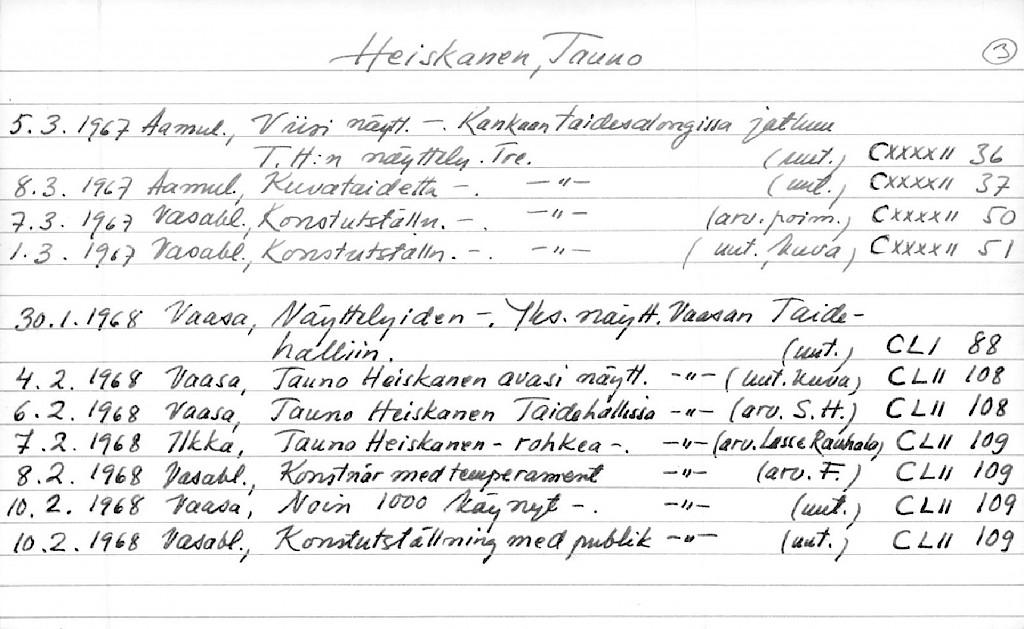 Heiskanen, Tauno 3
5.3.1967 Aamul., Viisi näytt. –. Kankaan taidesalongissa jatkuu
T.H:n näyttely. Tre. (uut.) CXXXXII 36
8.3.1967 Aamul., Kuvataidetta –. –"– (uut.) CXXXXII 37
7.3.1967 Vasabl., Konstutställn. –. –"– (arv. poim.) CXXXXII 50
1.3.1967 Vasabl., Konstutställn. –. –"– (uut., kuva) CXXXXII 51
30.1.1968 Vaasa, Näyttelyiden –. Yks. näytt. Vaasan Taide-
halliin. (uut.) CLI 88
4.2.1968 Vaasa, Tauno Heiskanen avasi näytt. –"– (uut. kuva) CLII 108
6.2.1968 Vaasa, Tauno Heiskanen Taidehallissa –"– (arv. S.H.) CLII 108
7.2.1968 Ilkka, Tauno Heiskanen – rohkea –. –"– (arv. Lasse Rauhala) CLII 109
8.2.1968 Vasabl., Konstnär med temperament –"– (arv. F.) CLII 109
10.2.1968 Vaasa, Noin 1000 käynyt –. –"– (uut.) CLII 109
10.2.1968 Vasabl., Konstutställning med publik –"– (uut.) CLII 109